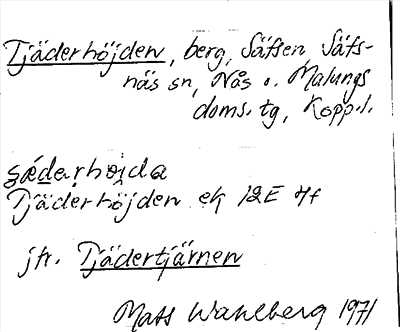 Tjäderhöjden, berg, Säfsen, Säfs-
näs sn, Nås o. Malungs
doms.tg, Kopp.l.
ɕǽdarhöi̯da
Tjäderhöjden ek 12E 4f
jfr. Tjädertjärnen
Mats Wahlberg 1971